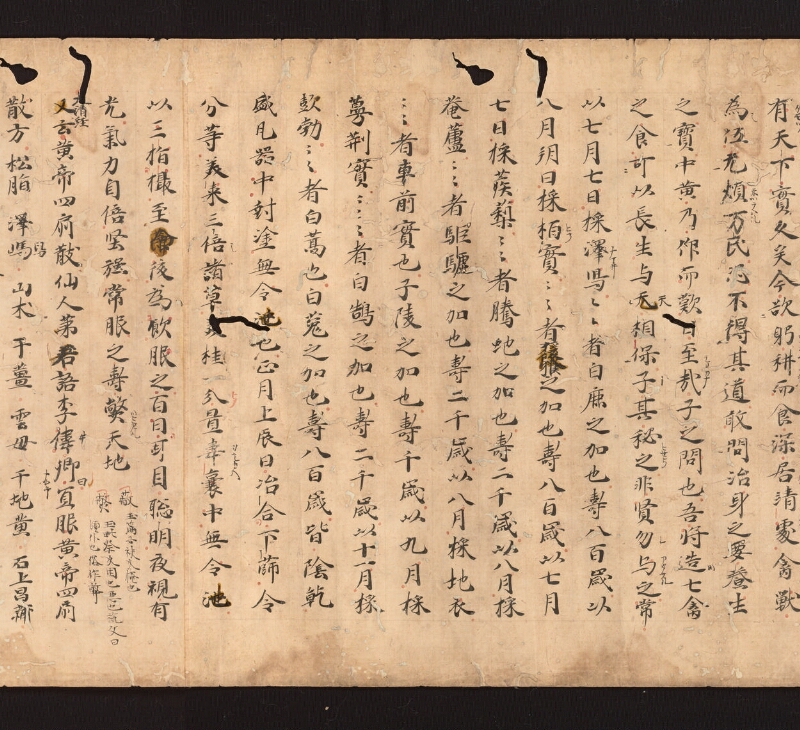 有天下實久矣今欲躬耕而食深居靖處禽獸
為伍无煩万民恐不得其道敢問治身之要養生
之寶中黃乃仰而歎曰至哉子之問也吾將造七禽
之食可以長生与天相保子其秘之非賢勿与之常
以七月七日採澤寫〻〻者白鹿之加也壽八百歲以
八月朔日採栢實〻〻者猨之加也壽八百歲以七月
七日採蒺蔾〻〻者騰虵之加也壽二千歲以八月採
菴蘆〻〻者駏驢之加也壽二千歲以八月採地衣
〻〻者車前實也子陵之加也壽千歲以九月採
蔓荊實〻〻〻者白鵠之加也壽二千歲以十一月採
彭勃〻〻者白蒿也白菟之加也壽八百歲皆陰乾
盛凡器中封塗無令泄也正月上辰日冶合下篩令
分等美棗三倍諸草美桂一分置韋囊中無令泄
以三指撮至食後為飲服之百日耳目聡明夜視有
光氣力自倍堅强常服之壽弊天地
又云黃帝四扇散仙人茅君語李偉卿曰宜服黃帝四扇
散方 松脂 澤寫 山术 干薑 雲母 干地黃 石上昌蒲